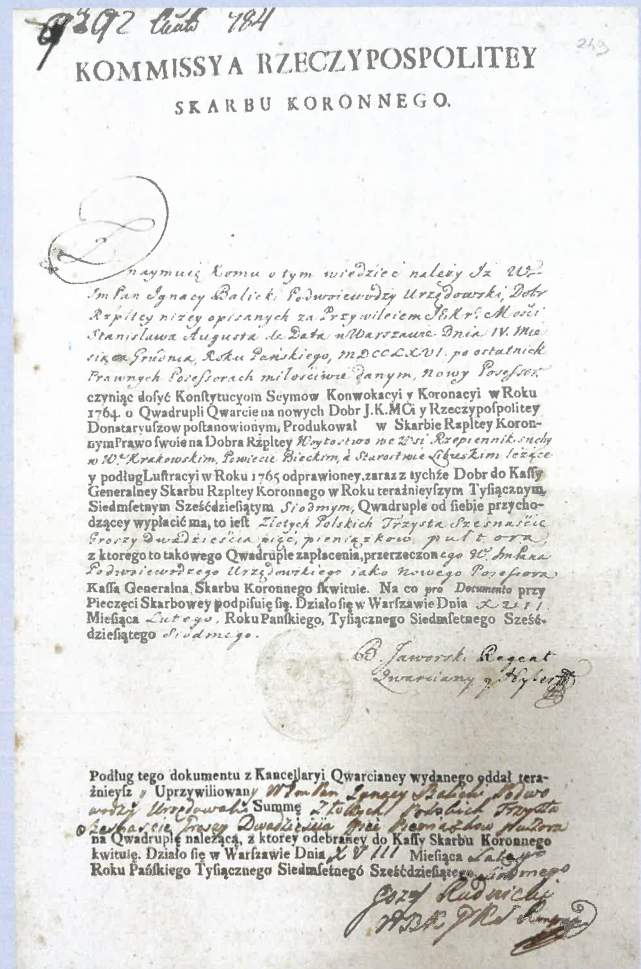 KOMMISSYA RZECZYPOSPOLITEY
SKARBU KORONNEGO.
249
Znaymuię Komu o tym wiedzieć należy Iż W.
ImPan Ignacy Balicki Podwoiewodzy Urzędowski, Dobr
Rzpltey niżey opisanych za Przywileiem JEKr: Mości
Stanisława Augusta de Data w Warszawie Dnia IV. Mie
siąca Grudnia, Roku Pańskiego, MDCCLXVI. po ostatnich
Prawnych Posessorach miłościwie danym, nowy Posessor
czyniąc dosyć Konstytucyom Seymów Konwokacyi y Koronacyi w Roku
1764. o Qwadrupli Qwarcie na nowych Dobr J.K.MCi y Rzeczypospolitey
Donataryuszow postanowionym, Produkował w Skarbie Rzpltey Koron-
nym Prawo swoie na Dobra Rzpltey Woytostwo we Wsi Rzepiennik suchy
w W. Krakowskim, Powiecie Bieckim, a Starostwie Libuskim leżące
y podług Lustracyi w Roku 1765 odprawioney, zaraz z tychże Dobr do Kassy
Generalney Skarbu Rzpltey Koronnego w Roku teraźnieyszym Tysiącznym,
Siedmsetnym Sześćdziesiątym Siodmym, Qwadruplę od siebie przycho-
dzącey wypłacić ma, to iest Złotych Polskich Trzysta Szesnaście
Groszy Dwadzieścia pięć, pieniążkow pułtora,
z ktorego to takowego Qwadruple zapłacenia, przerzeczonego W. ImPana
Podwoiewodzego Urzędowskiego iako Nowego Posessora
Kassa Generalna Skarbu Koronnego skwituie. Na co pro Documento przy
Pieczęci Skarbowey podpisuię się. Działo się w Warszawie Dnia XVII
Miesiąca Lutego, Roku Pańskiego, Tysiącznego Siedmsetnego Sześć-
dziesiątego Siodmego.
B. Jaworski Regent
Qwarciany
Podług tego dokumentu z Kancellaryi Qwarcianey wydanego oddał tera-
źnieysz y Uprzywiliowany W ImPan Ignacy Balicki Podwo
wodzy Urzędowski Summę Złotych Polskich Trzysta
szesnaście Groszy Dwadzieścia pięć Pieniążkow Pułtora
na Qwadruplę należącą, z ktorey odebraney do Kassy Skarbu Koronnego
kwituię. Działo się w Warszawie Dnia XVIII Miesiąca Lutego
Roku Pańskiego Tysiącznego Siedmsetnego Sześćdziesiątego Siodmego
Jozef Rudnicki